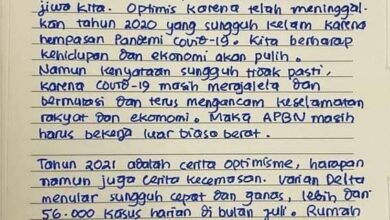 jiwa kita. Optimis karena telah meninggal-
kan tahun 2020 yang sungguh kelam karena
hempasan Pandemi Covid-19. Kita berharap
kehidupan dan ekonomi akan pulih.
Namun kenyataan sungguh tidak pasti,
karena Covid-19 masih merajalela dan
bermutasi dan terus mengancam keselamatan
rakyat dan ekonomi. Maka APBN masih
harus bekerja luar biasa berat.
Tahun 2021 adalah cerita optimisme, harapan
namun juga cerita kecemasan. Varian Delta
menular sungguh cepat dan ganas, lebih dari
56.000 kasus harian di bulan Juli. Rumah